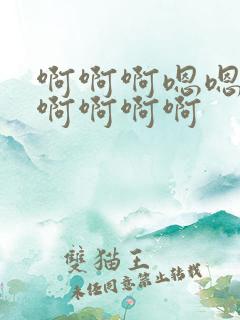 啊啊啊嗯嗯
啊啊啊啊
雙猫王
未经同意禁止转载